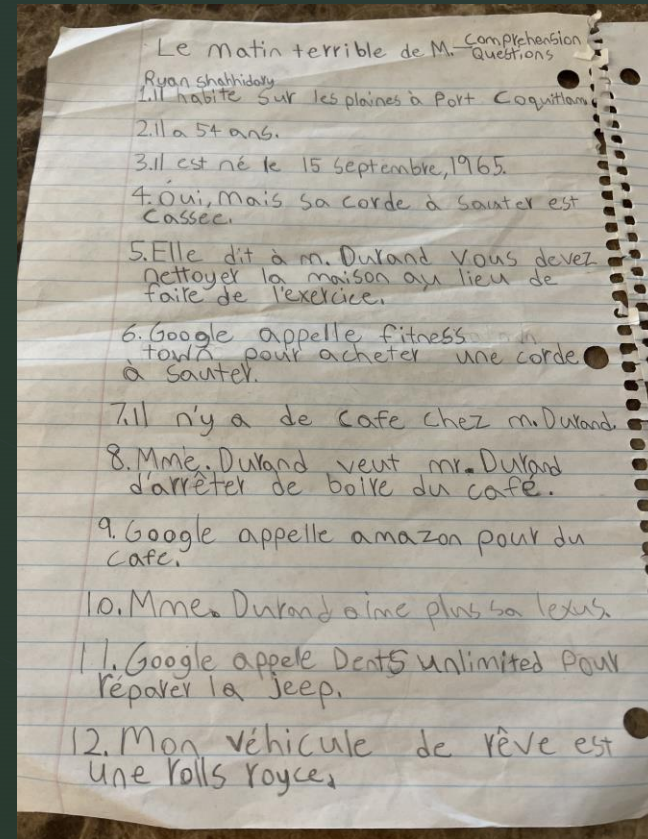 Le matin terrible de M. Comprehension Questions
Ryan
1. Il habite sur les plaines à Port Coquitlam
2. Il a 54 ans.
3. Il est né le 15 septembre, 1965.
4. Oui, mais sa corde à sauter est
cassee.
5. Elle dit à m. Durand vous devez
nettoyer la maison au lieu de
faire de l'exercice.
6. Google appelle fitness
town pour acheter une corde
à sauter.
7. Il n'y a de cafe chez m. Durand.
8. Mme. Durand veut mr. Durand
d'arrêter de boire du café.
9. Google appelle amazon pour du
cafe.
10. Mme. Durand aime plus sa lexus.
11. Google appele Dents unlimited Pour
réparer la jeep.
12. Mon véhicule de rêve est
une rolls royce.